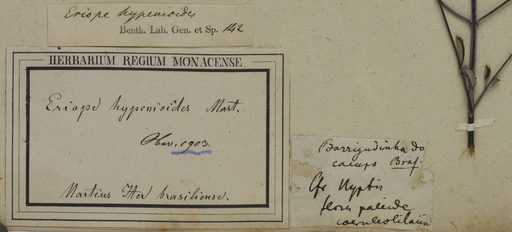 Eriope hypenioides
Benth. Lab. Gen. et Sp. 142
HERBARIUM REGIUM MONACENSE
Eriope hypenioides Mart.
Obs. 1903.
Martius Iter brasiliense.
Barrigudinha do
campo Bras.
Cfr Hyptis
flores pallide